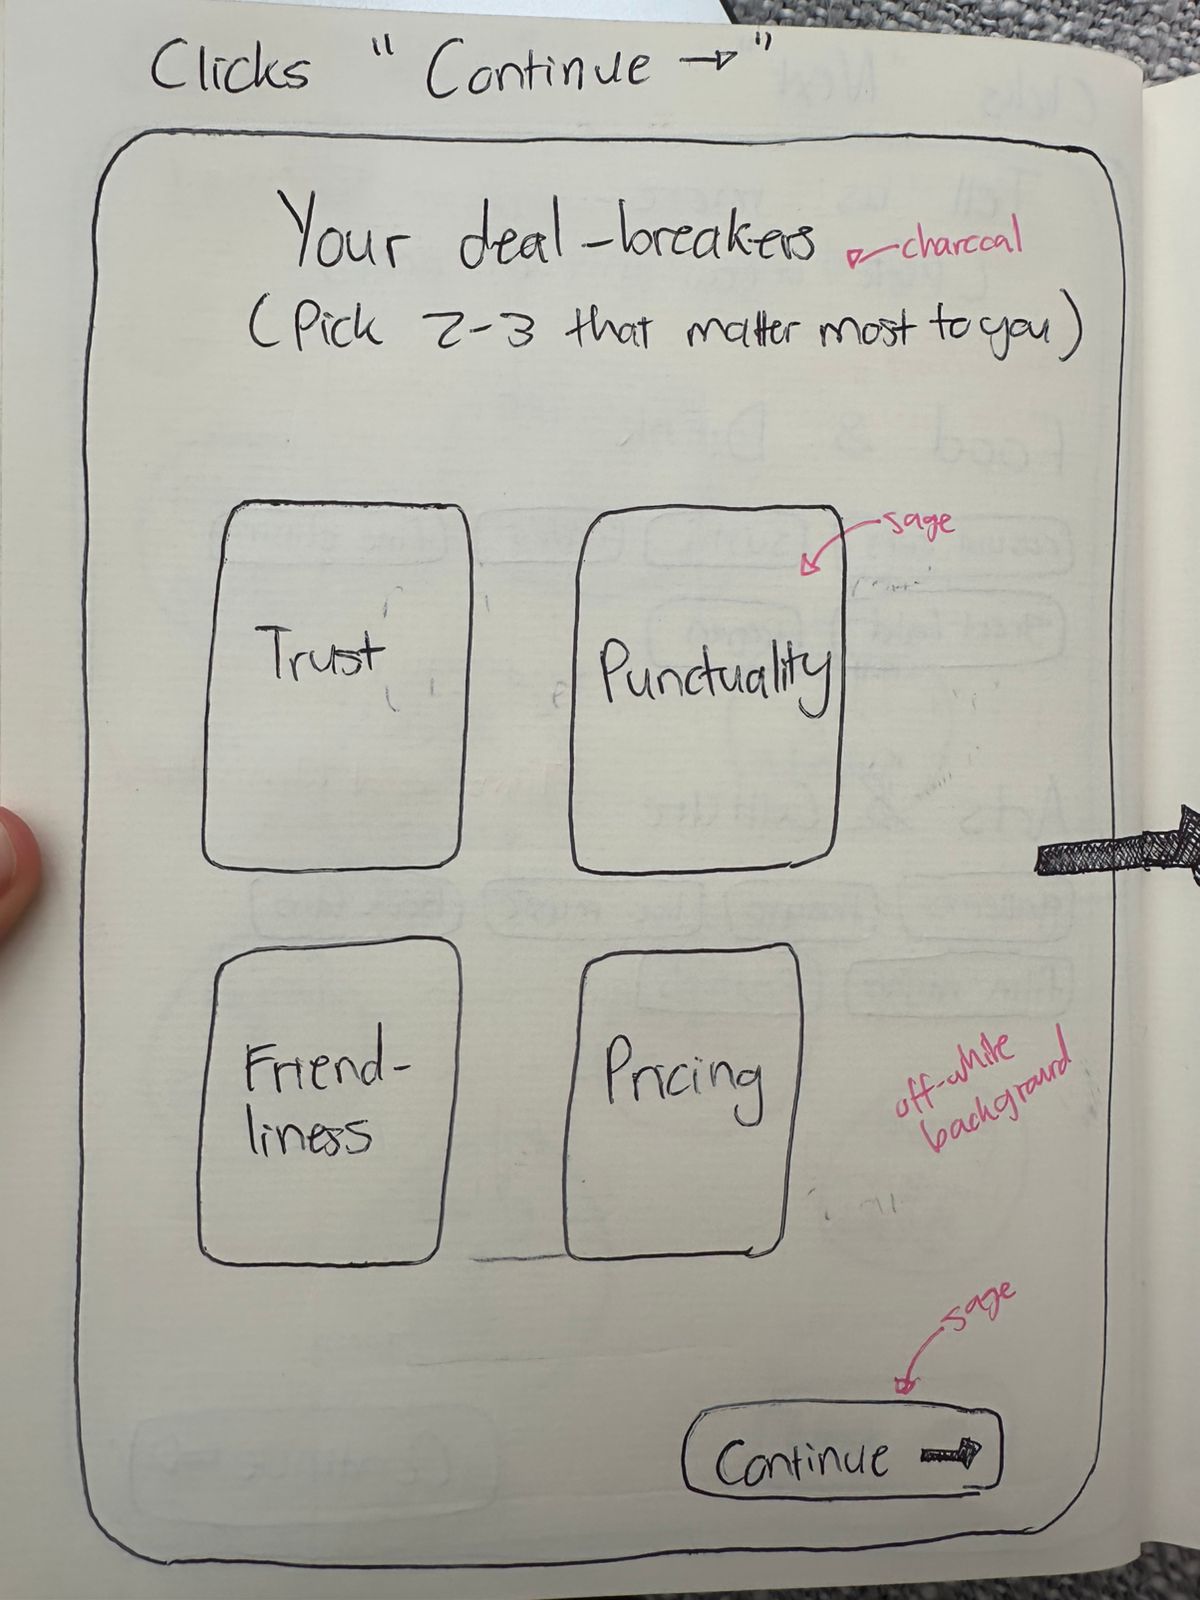 Clicks "Continue →"
Your deal-breakers
charcoal
(Pick 2-3 that matter most to you)
sage
Trust
Punctuality
Friend-
liness
Pricing
off-white
background
sage
Continue →